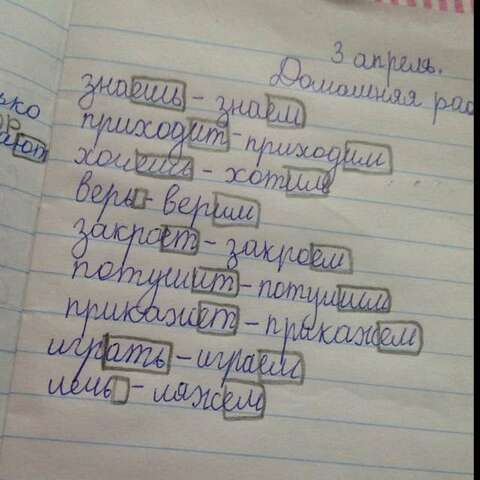 3 апрель.
Домашняя раб
знаешь - знаем
приходит - приходим
хочешь - хотим
верь - верим
закроет - закроем
потушит - потушим
прикажет - прыкажем
играть - играем
лечь - ляжем